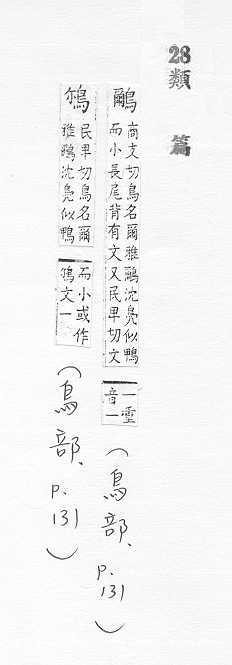 28 類 篇
鸍
商支切鳥名爾雅鸍沈鳧似鴨
而小長尾背有文又民卑切文
一重
音一
(鳥部、p.131)
民卑切鳥名爾
雅鸍沈鳧似鴨
而小或作
文一
(鳥部、p.131)